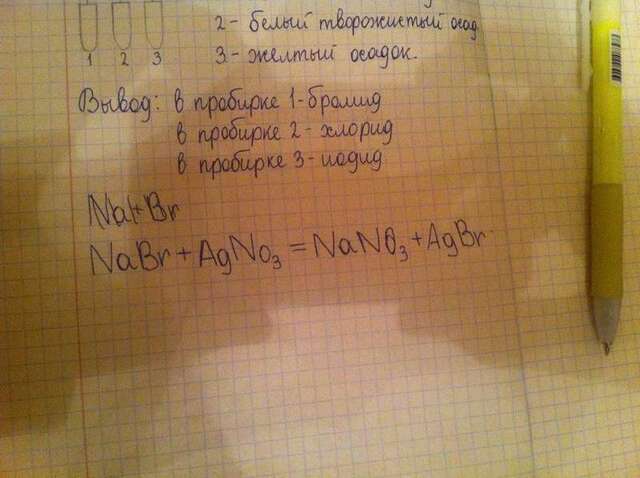 2- белый творожистый осад
1 2 3 3- желтый осадок.
Вывод: в пробирке 1-бромид
в пробирке 2- хлорид
в пробирке 3-иодид
NaI+Br
NaBr + AgNO3 = NaNO3 + AgBr